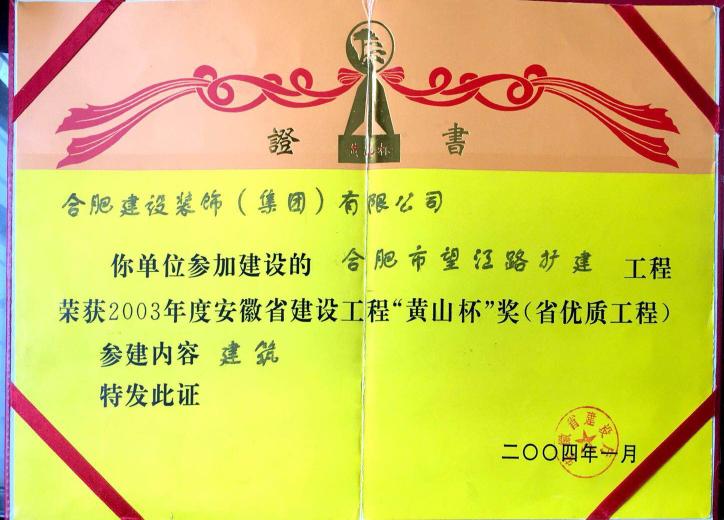 黄山杯
證書
合肥建设装饰（集团）有限公司
你单位参加建设的 合肥市望江路扩建 工程
荣获2003年度安徽省建设工程“黄山杯”奖(省优质工程)
参建内容 建筑
特发此证
安徽省建设厅
二〇〇四年一月